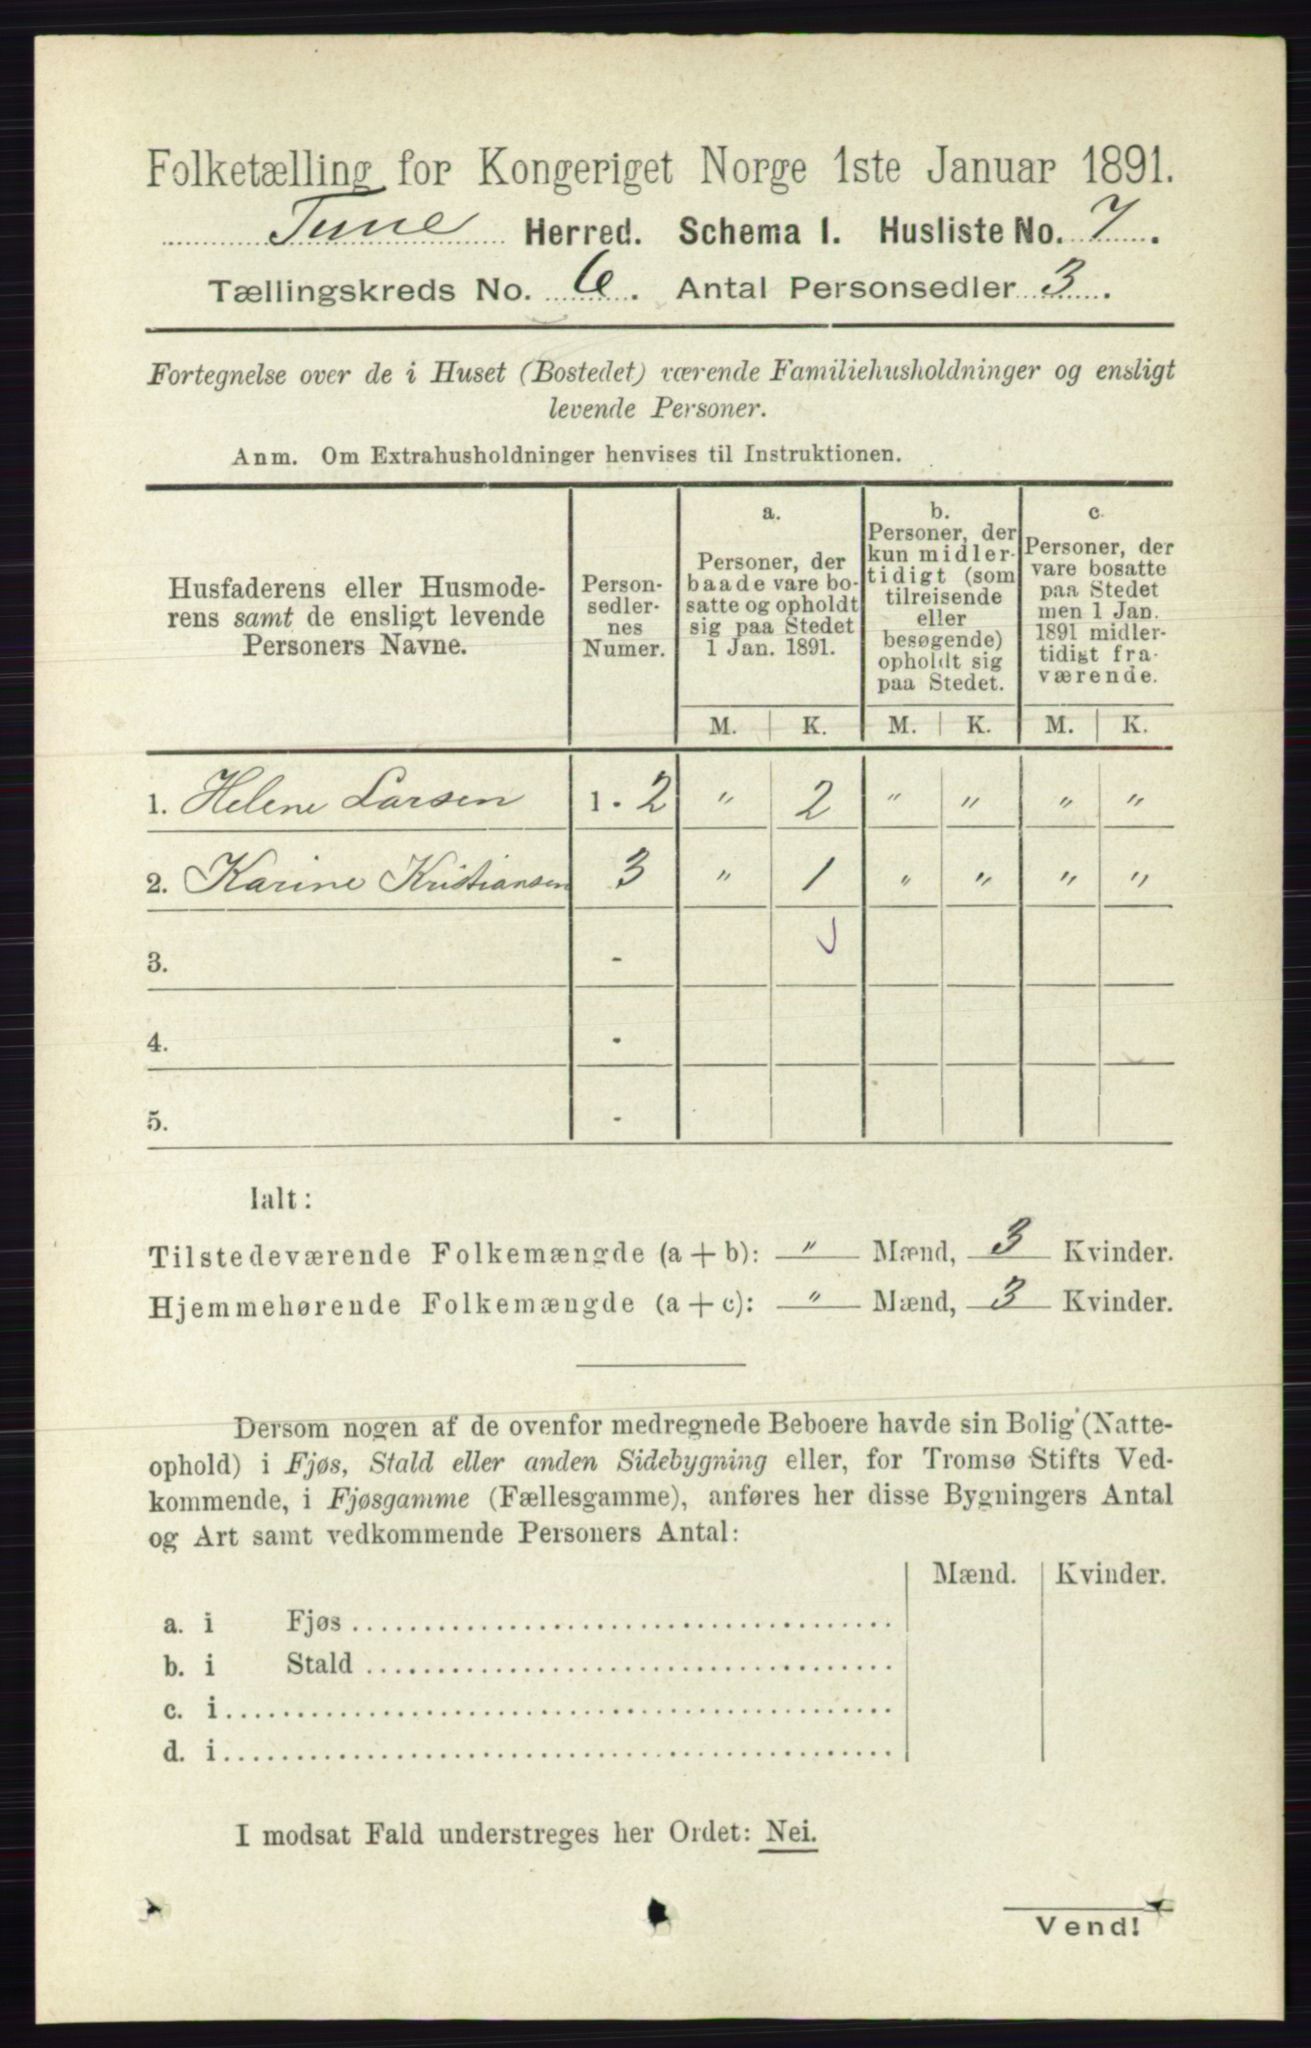 Folketælling for Kongeriget Norge 1ste Januar 1891.
Tune Herred. Schema 1. Husliste No. 7.
Tællingskreds No. 6. Antal Personsedler 3.
Fortegnelse over de i Huset (Bostedet) værende Familiehusholdninger og ensligt
levende Personer.
Anm. Om Extrahusholdninger henvises til Instruktionen.
Husfaderens eller Husmode-
rens samt de ensligt levende
Personers Navne.
Person-
sedler-
nes
Numer.
a.
Personer, der
baade vare bo-
satte og opholdt
sig paa Stedet
1 Jan. 1891.
b.
Personer, der
kun midler-
tidigt (som
tilreisende
eller
besøgende)
opholdt sig
paa Stedet.
c.
Personer, der
vare bosatte
paa Stedet
men 1 Jan.
1891 midler-
tidigt fra-
værende.
M. K. M. K. M. K.
1. Helene Larsen 1 - 2 " 2 " " " "
2. Karine Kristiansen 3 " 1 " " " "
3. -
4. -
5. -
Ialt:
Tilstedeværende Folkemængde (a + b): " Mænd, 3 Kvinder.
Hjemmehørende Folkemængde (a + c): " Mænd, 3 Kvinder.
Dersom nogen af de ovenfor medregnede Beboere havde sin Bolig (Natte-
ophold) i Fjøs, Stald eller anden Sidebygning eller, for Tromsø Stifts Ved-
kommende, i Fjøsgamme (Fællesgamme), anføres her disse Bygningers Antal
og Art samt vedkommende Personers Antal:
Mænd. Kvinder.
a. i Fjøs
b. i Stald
c. i
d. i
I modsat Fald understreges her Ordet: Nei.
Vend!